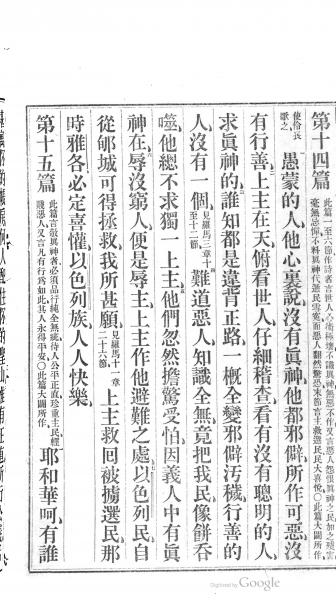 第十四篇
此篇一至六節作詩者言世人心術極壞不識眞神
使伶長歌之
愚蒙的人他心裏說沒有眞神他都邪僻所作可惡沒
有行善上主在天俯看世人仔細稽查看有沒有聰明的人
求眞神的誰知都是違背正路 槪全變邪僻汚穢行善的
人沒有一個見羅馬三章十至十二節難道惡人知識全無竟把我民像餠吞
噬他總不求獨一上主他們忽然擔驚受怕因義人中有眞
神在辱沒窮人便是辱主上主作他避難之處以色列民自
從郇城可得拯救我所甚願見羅馬十一章二十六節上主救回被擄選民那
時雅各必定喜懽以色列族人人快樂
第十五篇
此篇言敬與神者必須品行純全無疵待人公平正直珍重主民輕
賤惡人又言凡有行爲如此其人永得平安〇此篇大闢所作
耶和華呵有誰
Digitized by Google